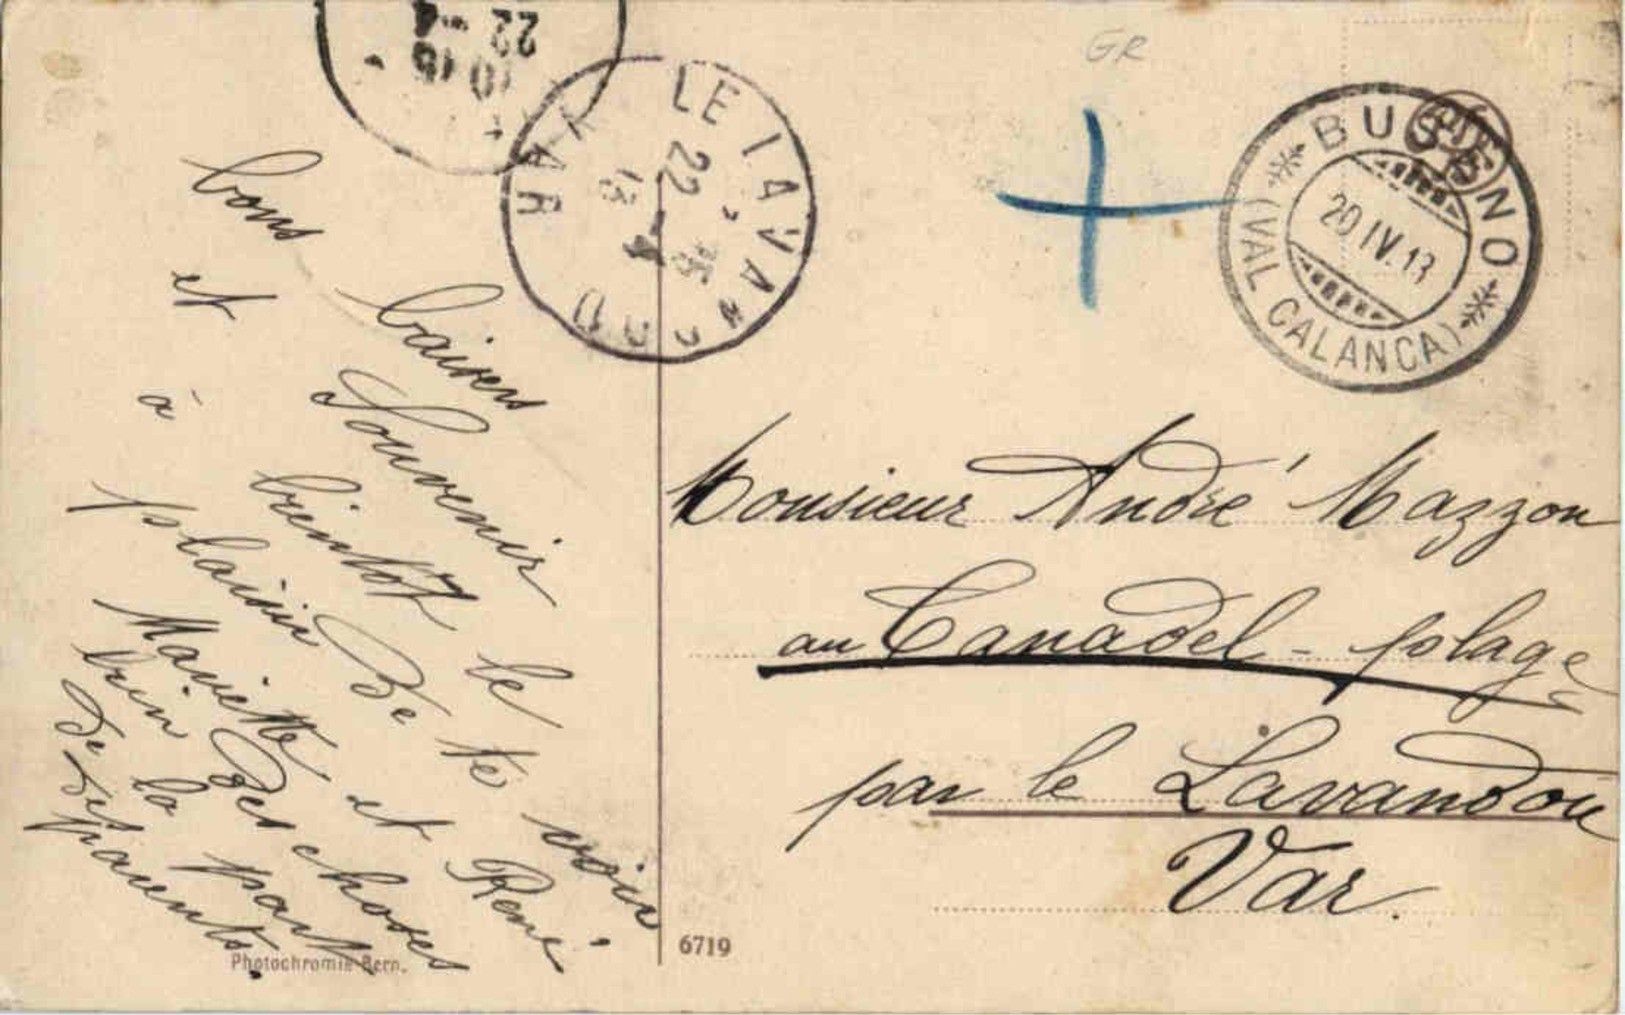 22-4
10 15
LE LAVANDOU
VAR
22 - 4
13
GR
BUSENO
(VAL CALANCA)
20 IV. 13
bons baisers
et Souvenir
à bientôt le
plaisir de te voir
Mariette et René
bien des choses
de la part
de parents.
Monsieur André Mazzon
au Canadel-plage
par le Lavandou
Var.
Photochromie Bern.
6719